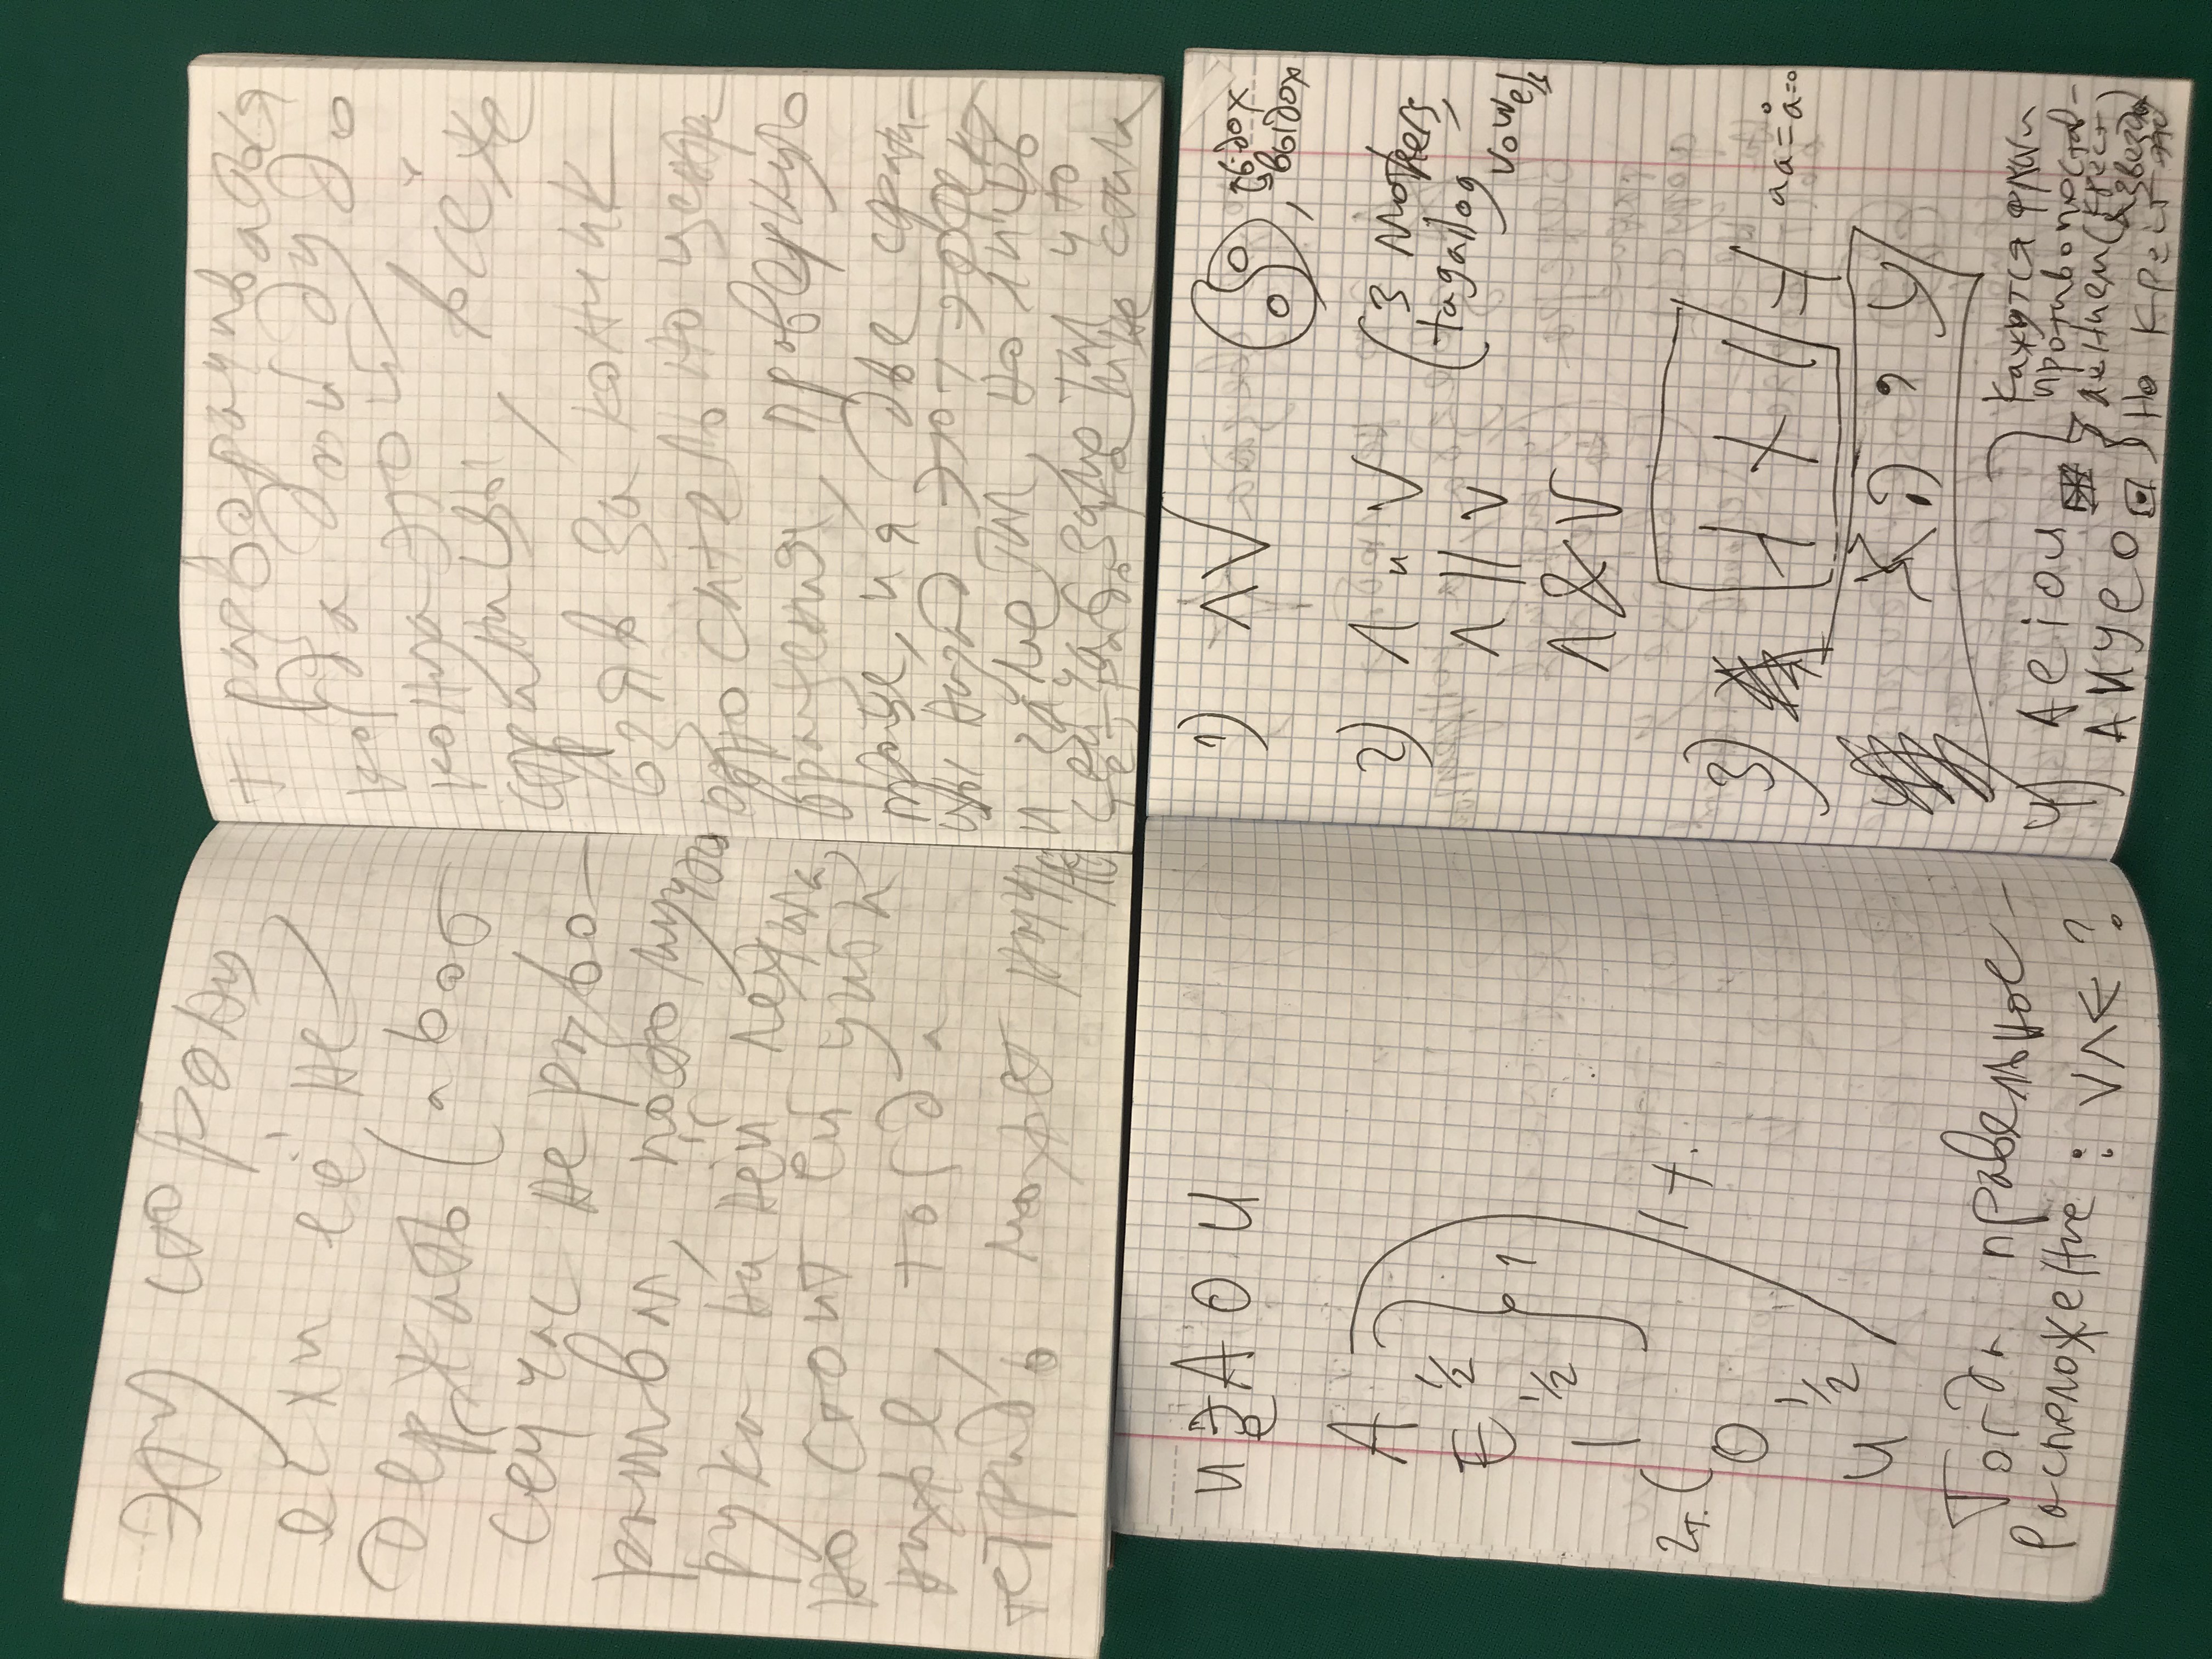 эту сторону,
если её не
держать (а вот
сейчас не разво-
рота, потому что
рука на ней лежала,
но стоит ей уйти
ниже, тогда
тетрадь может начи
на
т разворачиваться
когда дойду до
конца этой
страницы, всё же
взяв за кончик
относительно центра
вращения, провернуть
проще, и я две страни-
цы назад этот эффект
и заметил, но лишь
сейчас заметил что
тетрадь стала
И Э А О И
е
А
1/2
Е
1/2
1
I
1 т.
2т. (
О
1/2
И
Тогда правельное
расположение: V Λ < ?
1) ΛV , вдох
выдох
2) Λ и V (3 Mothers,
Λ || V tagallog
vowels
Λ & V
3) aa = å = o
4) Aeiou
АИУЕО
Кажутся
противопостав-
лением (крест
& звезда)
Но крест